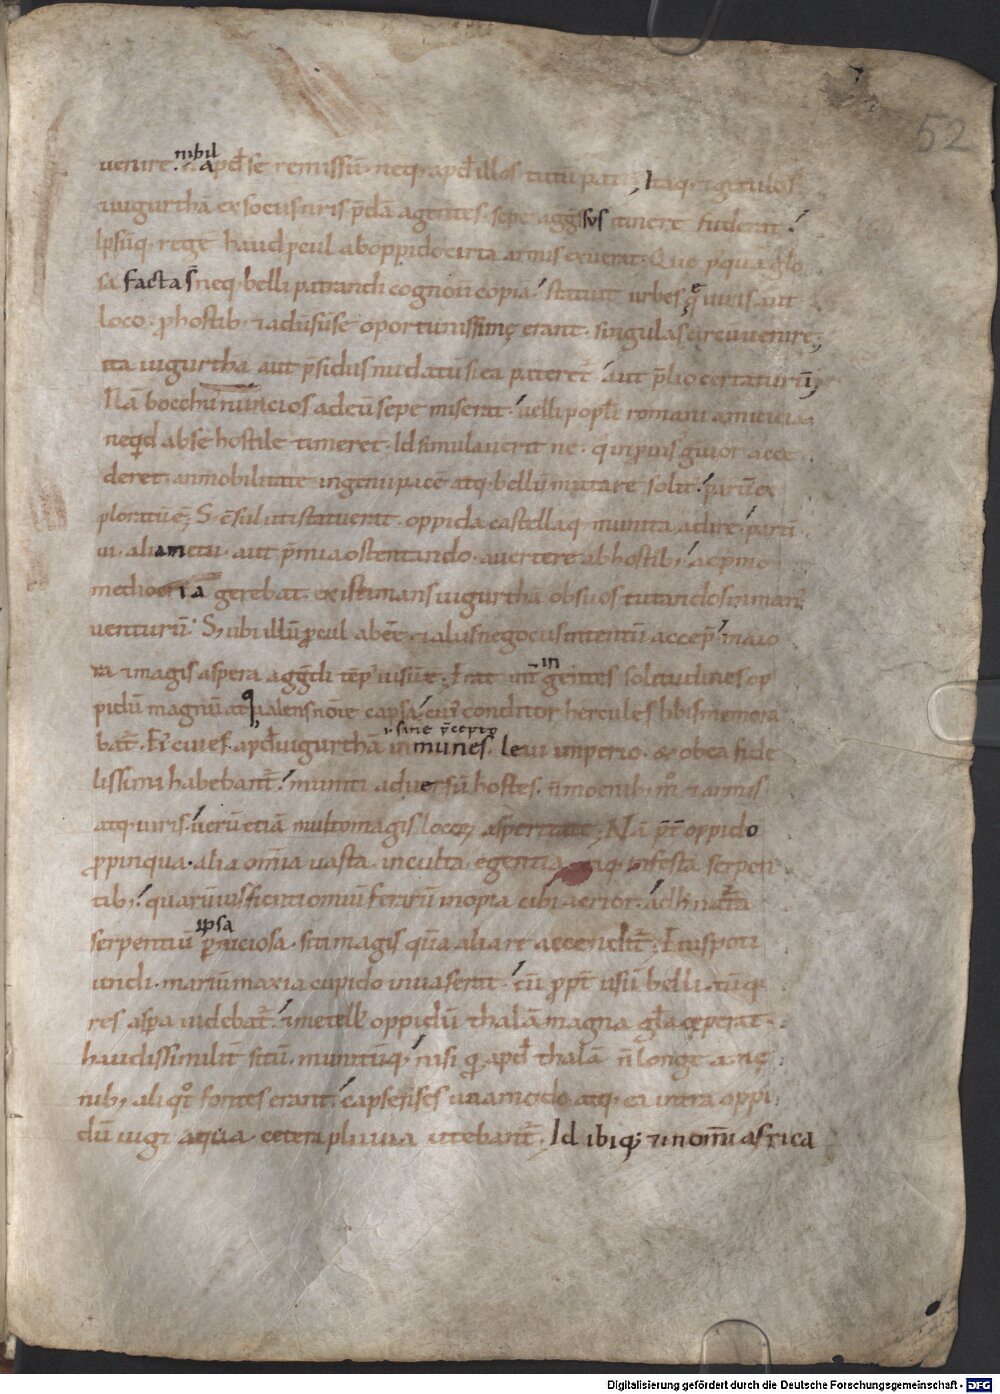 52
uenire. nihil apđ se remissū. neq; apđ illos tutū pati; Itaq; & getulos
iugurthā ex sociis nr̄is p̄dā agentes. sepe aggr̄ssus itinere fuderat.
Ipsūq; regē haud ꝓcul ab oppido cirta armis exuerat. Que p̄quā glo
sa facta s̄ neq; belli patrandi cognouit copia. statuit urbes. quę uiris aut
loco. ꝓ hostib; & adūsū se oportunissimę erant. singulas circūuenire;
ita iugurthā aut p̄sidiis nudatū si ea pateret̄. aut p̄lio certaturū;
Nā bocchus nuncios ad eū sepe miserat. uelle popłi romani amicitiā
neqđ ab se hostile timeret. Id simulauerit ne. q̇ inprouisus grauior acce
deret. an mobilitate ingenii pacē atq; bellū mutare solit᾽. parū ex
ploratū ē; S; c̄sul uti statuerat. oppida castellaq; munita adire. partī
ui. alia metu. aut p̄mia ostentando. auertere ab hostib;. ac p̄mo
mediocria gerebat. existimans iugurthā ob suos tutandos in man᾽
uenturū. S; ubi illū ꝓcul abeē. & aliis negociis intentū accep̄. maio
ra & magis aspera aggr̄di tēp᾽ uisū ē. Erat int̄ in gentes solitudines op
pidū magnū atq; ualens nōīe capsa. cui᾽ conditor hercules libis memora
bat̄. Ei᾽ ciues. apđ iugurthā inmunes. leui imperio. & ob ea fide
.i. sine p̄ceptis
lissimi habebant̄. muniti aduersū hostes. ñ moenib; m̊ & armis
atq; uiris. uerū etiā multo magis locoꝝ asperitate. Nā p̄t̄ oppido
ꝓpinqua. alia omīa uasta. inculta. egentia aq. infesta serpen
tib;. quarū uis sicuti omīū ferarū inopia cibi acrior. ad h̄ natā
serpentiū ipsa p̄niciosa. siti magis quā alia re accendit̄. Ei᾽ potī
undi. mariū maxīa cupido inuaserat. cū ꝓpt̄ usū belli. tū q;
res asp̄a uidebat̄. & metell᾽ oppidū thalā magna gła cęperat.
haud dissimilit̄ sitū. munitūq;. nisi qđ apđ thalā ñ longe a mę
nib; aliqt̊ fontes erant. capsenses una modo atq; ea intra oppi
dū iugi aqua. cetera pluuia utebant̄. Id ibiq; & in omī africa